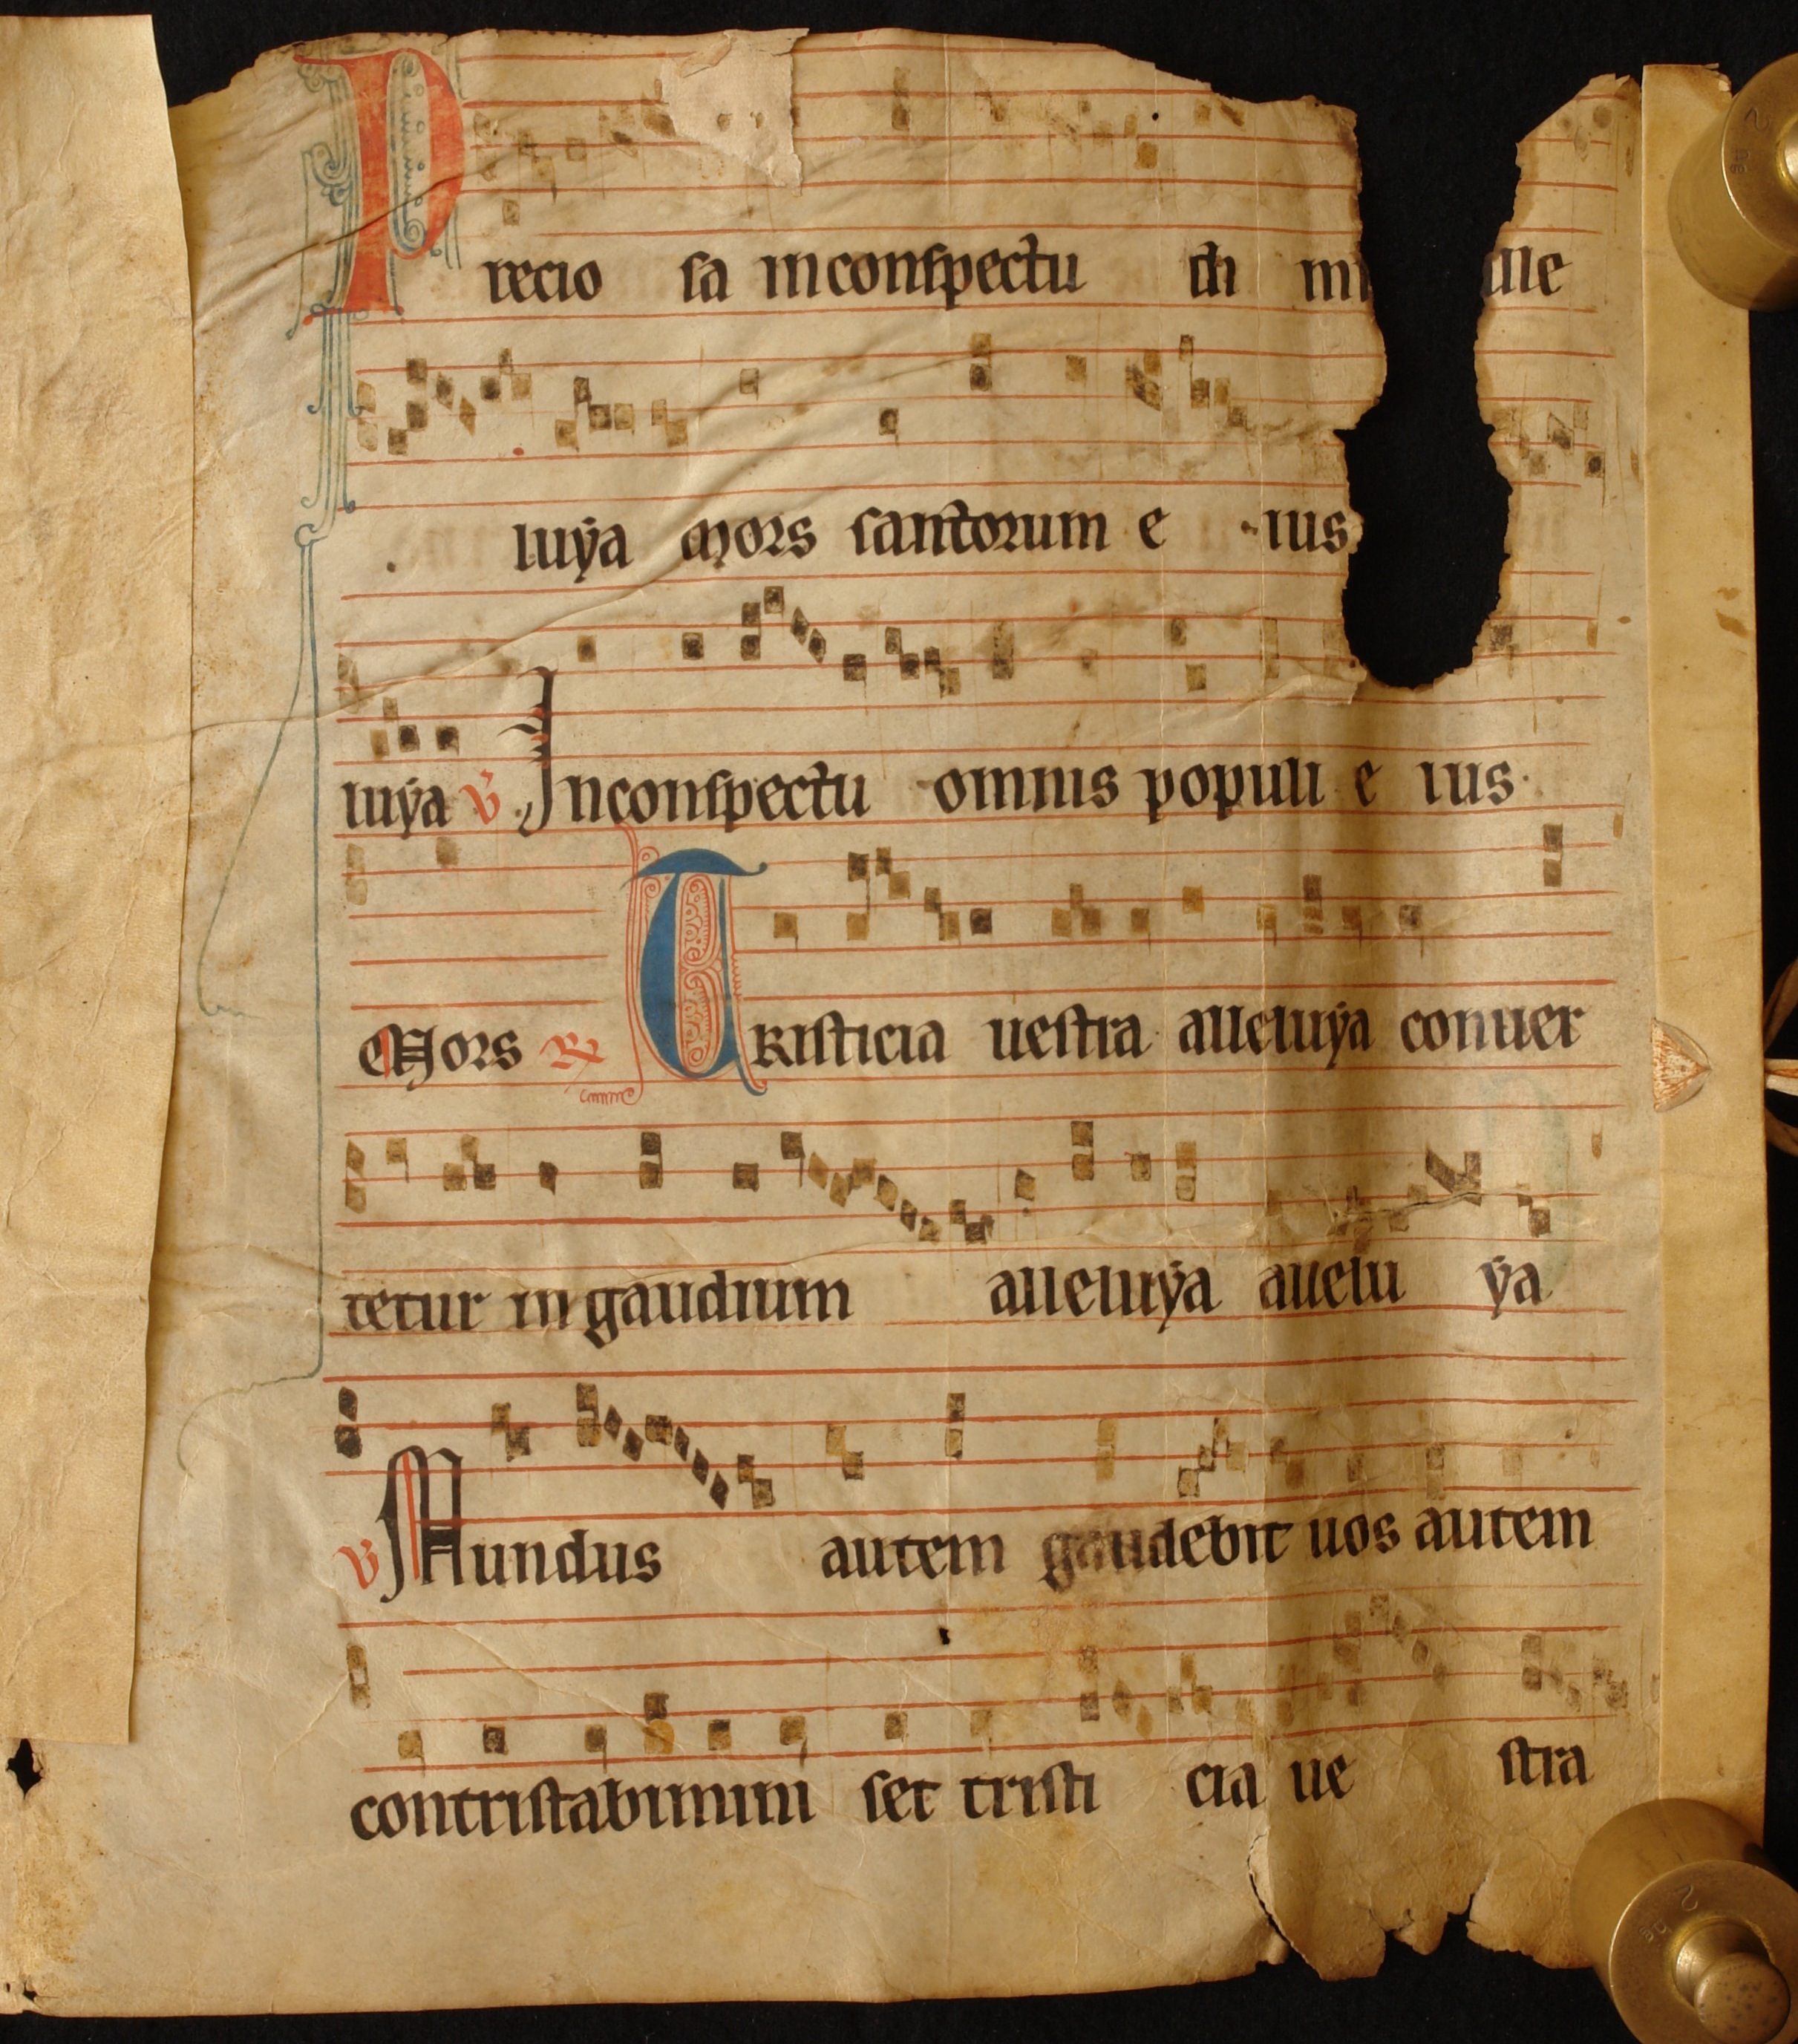 Precio sa inconspectu dñi alle
luÿa Mors santorum e ius
luÿa ℣ Inconspectu omnis populi e ius
Mors ℟ Tristicia uestra alleluÿa conuer
tetur in gaudium alleluÿa allelu ÿa
℣ Mundus autem gaudebit uos autem
contristabimini set tristi cia ue stra